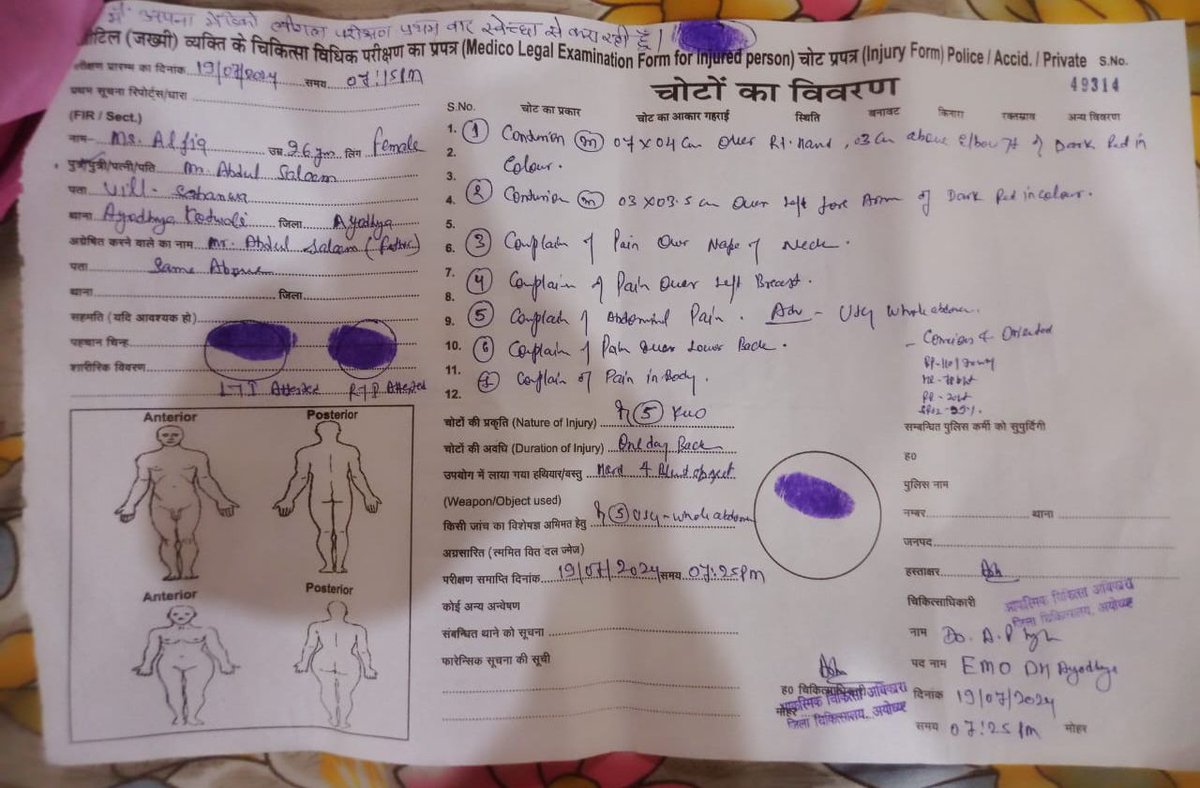 मैं अपना मेडिको लीगल परीक्षण प्रथम बार स्वेच्छा से करा रही हूँ।
(जख्मी) व्यक्ति के चिकित्सा विधिक परीक्षण का प्रपत्र (Medico Legal Examination Form for Injured person) चोट प्रपत्र (Injury Form) Police / Accid. / Private S.No.
49314
चोटों का विवरण
परीक्षण प्रारम्भ का दिनांक 19/07/2024 समय 07:15PM
प्रथम सूचना रिपोर्ट्स/धारा
(FIR / Sect.)
नाम- Ms. Alfiq उम्र 26 लिंग female
पुत्र/पुत्री/पत्नी/पति Mr. Abdul Salaam
पता Vill-
थाना Ayodhya Kotwali जिला Ayodhya
अग्रेषित करने वाले का नाम Mr. Abdul Salaam (father)
पता Same Above
थाना जिला
सहमति (यदि आवश्यक हो)
पहचान चिन्ह
शारीरिक विवरण
LTI Attested RTI Attested
Anterior Posterior
Anterior Posterior
S.No. चोट का प्रकार चोट का आकार गहराई स्थिति बनावट किनारा रक्तस्राव अन्य विवरण
1. ① Contusion 07 X 04 cm over Rt. Hand, 03 cm above elbow Jt of Dark Red in
2. Colour.
3.
4. ② Contusion 03 X 03.5 cm over left fore Arm of Dark Red in colour.
5.
6. ③ Complain of Pain over Nape of Neck.
7. ④ Complain of Pain over left Breast.
8.
9. ⑤ Complain of Abdominal Pain. Adv - USG whole abdomen.
10. ⑥ Complain of Pain over Lower Back.
11. ⑦ Complain of Pain in Body.
12.
- Concious & Oriented
चोटों की प्रकृति (Nature of Injury) ⑤ KUO
चोटों की अवधि (Duration of Injury) One day Back
उपयोग में लाया गया हथियार/वस्तु Hard & Blunt object
(Weapon/Object used)
किसी जांच का विशेषज्ञ अभिमत हेतु ⑤ USG - whole abdomen
अग्रसारित (स्ममित वित दल ज्मेज)
परीक्षण समाप्ति दिनांक 19/07/2024 समय 07:25PM
कोई अन्य अन्वेषण
संबन्धित थाने को सूचना
फारेन्सिक सूचना की सूची
सम्बन्धित पुलिस कर्मी को सुपुर्दिगी
ह0
पुलिस नाम
नम्बर थाना
जनपद
हस्ताक्षर
चिकित्साधिकारी
आकस्मिक चिकित्सा अधिकारी
जिला चिकित्सालय, अयोध्या
नाम Dr. A.P
पद नाम EMO DH Ayodhya
दिनांक 19/07/2024
समय 07:25 PM मोहर
ह0 चिकित्साधिकारी
मोहर
आकस्मिक चिकित्सा अधिकारी
जिला चिकित्सालय, अयोध्या